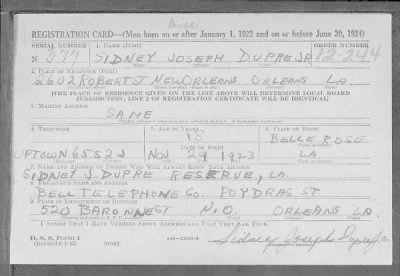 Disc
REGISTRATION CARD—(Men born on or after January 1, 1922 and on or before June 30, 1924)
SERIAL NUMBER 1. NAME (Print) ORDER NUMBER
N 377 SIDNEY JOSEPH DUPRE JR 12-244
2. PLACE OF RESIDENCE (Print)
2602 ROBERT ST NEW ORLEANS ORLEANS LA
[THE PLACE OF RESIDENCE GIVEN ON THE LINE ABOVE WILL DETERMINE LOCAL BOARD
JURISDICTION; LINE 2 OF REGISTRATION CERTIFICATE WILL BE IDENTICAL]
3. MAILING ADDRESS
SAME
4. TELEPHONE 5. AGE IN YEARS 6. PLACE OF BIRTH
18 BELLE ROSE
DATE OF BIRTH
UPTOWN 6552 J NOV 29 1923 LA.
7. NAME AND ADDRESS OF PERSON WHO WILL ALWAYS KNOW YOUR ADDRESS
SIDNEY J. DUPRE RESERVE, LA.
8. EMPLOYER'S NAME AND ADDRESS
BELL TELEPHONE CO. POYDRAS ST
9. PLACE OF EMPLOYMENT OR BUSINESS
520 BARONNE ST N.O. ORLEANS LA.
I AFFIRM THAT I HAVE VERIFIED ABOVE ANSWERS AND THAT THEY ARE TRUE.
D. S. S. Form 1
Sidney Joseph Dupre Jr